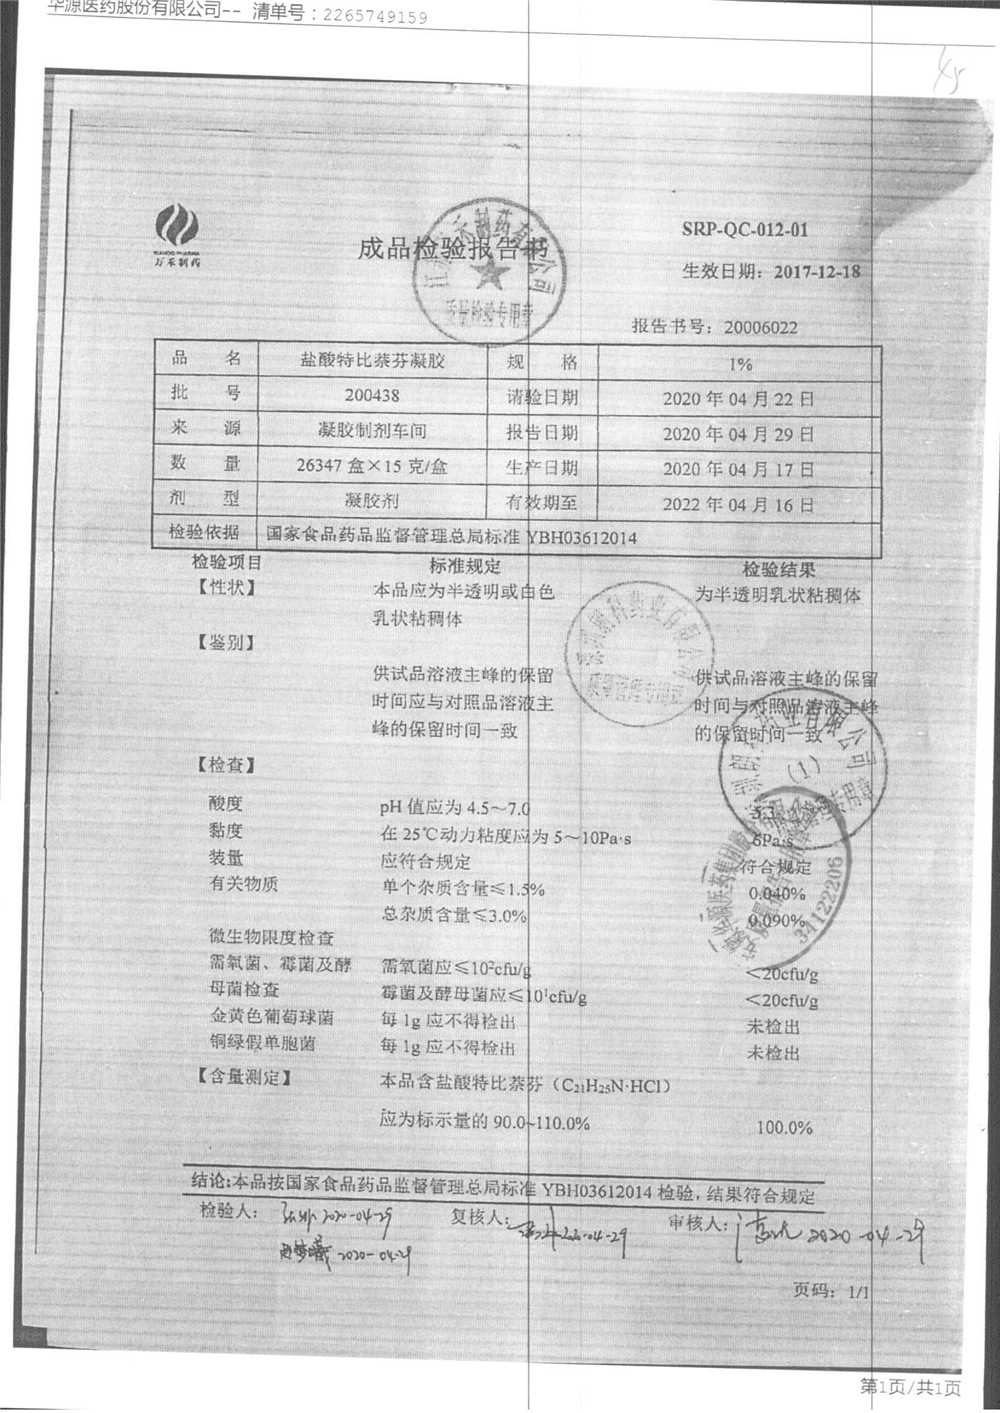 华源医药股份有限公司-- 清单号：2265749159
45
万禾制药
成品检验报告书
质量检验专用章
SRP-QC-012-01
生效日期：2017-12-18
报告书号：20006022
品 名 盐酸特比萘芬凝胶 规 格 1%
批 号 200438 请验日期 2020 年 04 月 22 日
来 源 凝胶制剂车间 报告日期 2020 年 04 月 29 日
数 量 26347 盒×15 克/盒 生产日期 2020 年 04 月 17 日
剂 型 凝胶剂 有效期至 2022 年 04 月 16 日
检验依据 国家食品药品监督管理总局标准 YBH03612014
检验项目 标准规定 检验结果
【性状】 本品应为半透明或白色 为半透明乳状粘稠体
乳状粘稠体
【鉴别】
供试品溶液主峰的保留 供试品溶液主峰的保留
时间应与对照品溶液主 时间与对照品溶液主峰
峰的保留时间一致 的保留时间一致
【检查】
酸度 pH 值应为 4.5～7.0
黏度 在 25℃动力粘度应为 5～10Pa·s 6Pa·s
装量 应符合规定 符合规定
有关物质 单个杂质含量≤1.5% 0.040%
总杂质含量≤3.0% 0.090%
微生物限度检查
需氧菌、霉菌及酵 需氧菌应≤10²cfu/g <20cfu/g
母菌检查 霉菌及酵母菌应≤10¹cfu/g <20cfu/g
金黄色葡萄球菌 每 1g 应不得检出 未检出
铜绿假单胞菌 每 1g 应不得检出 未检出
【含量测定】 本品含盐酸特比萘芬（C₂₁H₂₅N·HCl）
应为标示量的 90.0~110.0% 100.0%
结论:本品按国家食品药品监督管理总局标准 YBH03612014 检验, 结果符合规定
检验人： 2020-04-29 复核人： 2020-04-29 审核人： 2020-04-29
2020-04-29
页码： 1/1
第1页/共1页